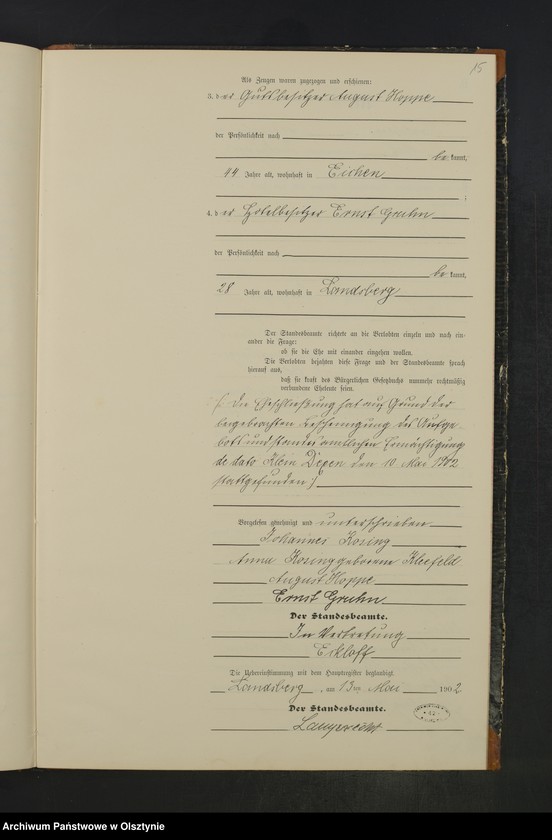 15
Als Zeugen waren zugezogen und erschienen:
3. der Gutsbesitzer August Hoppe
der Persönlichkeit nach
be kannt,
44 Jahre alt, wohnhaft in Eichen
;
4. der Hotelbesitzer Ernst Gruhn
der Persönlichkeit nach
be kannt,
28 Jahre alt, wohnhaft in Landsberg
Der Standesbeamte richtete an die Verlobten einzeln und nach ein-
ander die Frage:
ob sie die Ehe mit einander eingehen wollen.
Die Verlobten bejahten diese Frage und der Standesbeamte sprach
hierauf aus,
daß sie kraft des Bürgerlichen Gesetzbuchs nunmehr rechtmäßig
verbundene Eheleute seien.
/: Die Eheschließung hat auf Grund der
beigebrachten Bescheinigung des Aufge-
bots und standesamtlichen Ermächtigung
de dato Klein Dexen den 10. Mai 1902
stattgefunden :/
Vorgelesen, genehmigt und unterschrieben
Johannes Koring
Anna Koring geborene Kleefeld
August Hoppe
Ernst Gruhn
Der Standesbeamte.
In Vertretung
Eckloff
Die Uebereinstimmung mit dem Hauptregister beglaubigt
Landsberg, am 13ten Mai 1902
Der Standesbeamte.
Archiwum Państwowe w Olsztynie